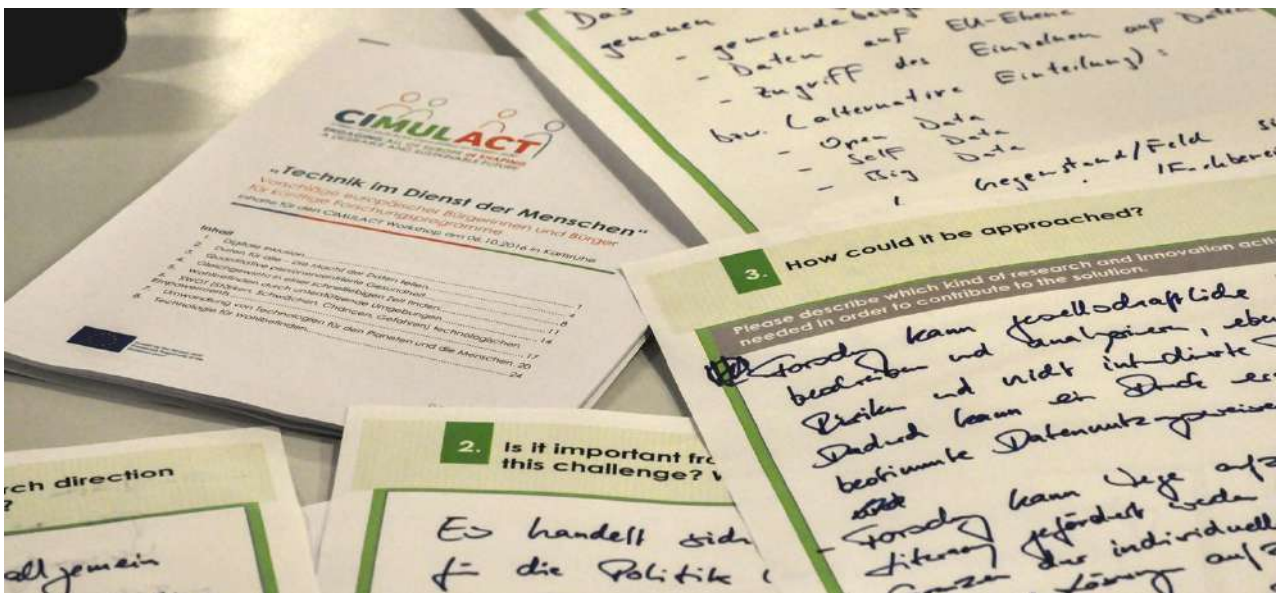 CIMULACT
ENGAGING ALL OF EUROPE IN SHAPING
A DESIRABLE AND SUSTAINABLE FUTURE
„Technik im Dienst der Menschen“
Vorschläge europäischer Bürgerinnen und Bürger
für künftige Forschungsprogramme
Inhalte für den CIMULACT Workshop am 06.10.2016 in Karlsruhe
Inhalt
1. Digitale Inklusion
2. Daten für alle – die Macht der Daten teilen
3. Quantitative personalisierte Gesundheit
4. Gleichgewicht in einer schnelllebigen Zeit finden
5. Wohlbefinden durch Umgebungen
6. SWOT (Stärken, Schwächen, Chancen, Gefahren) technologischen
7. Umwandlung von Technologien für den Planeten und die Menschen 20
8. Technologie für Wohlbefinden 24
Das
genauen
- gemeindebezog
- Daten auf EU-Ebene
- Zugriff des Einzelnen auf Daten
bzw. (alternative Einteilung):
- Open Data
- Self Data
- Big
Gegenstand/Feld
3. How could it be approached?
Please describe which kind of research and innovation acti
needed in order to contribute to the solution.
kann gesellschaftliche
beschreiben und analysieren, eben
Risiken und nicht intendierte
Dadurch kann ein
bestimmte Datennutzungsweisen
kann Wege aufz
gefördert werden
Grenzen der individuell
Lösungen auf
2. Is it important fro
this challenge? W
Es handelt sich
für die Politik
rch direction
?
allgemein